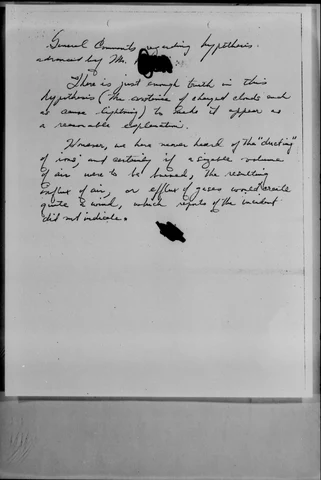 General Comments regarding hypothesis
advanced by Mr.
There is just enough truth in this
hypothesis (the existence of charged clouds such
as cause lightning) to make it appear as
a reasonable explanation.
However, we have never heard of the "ducting"
of ions; and certainly if a sizable volume
of air were to be burned, the resulting
influx of air, or efflux of gases would create
quite a wind, which reports of the incident
did not indicate.